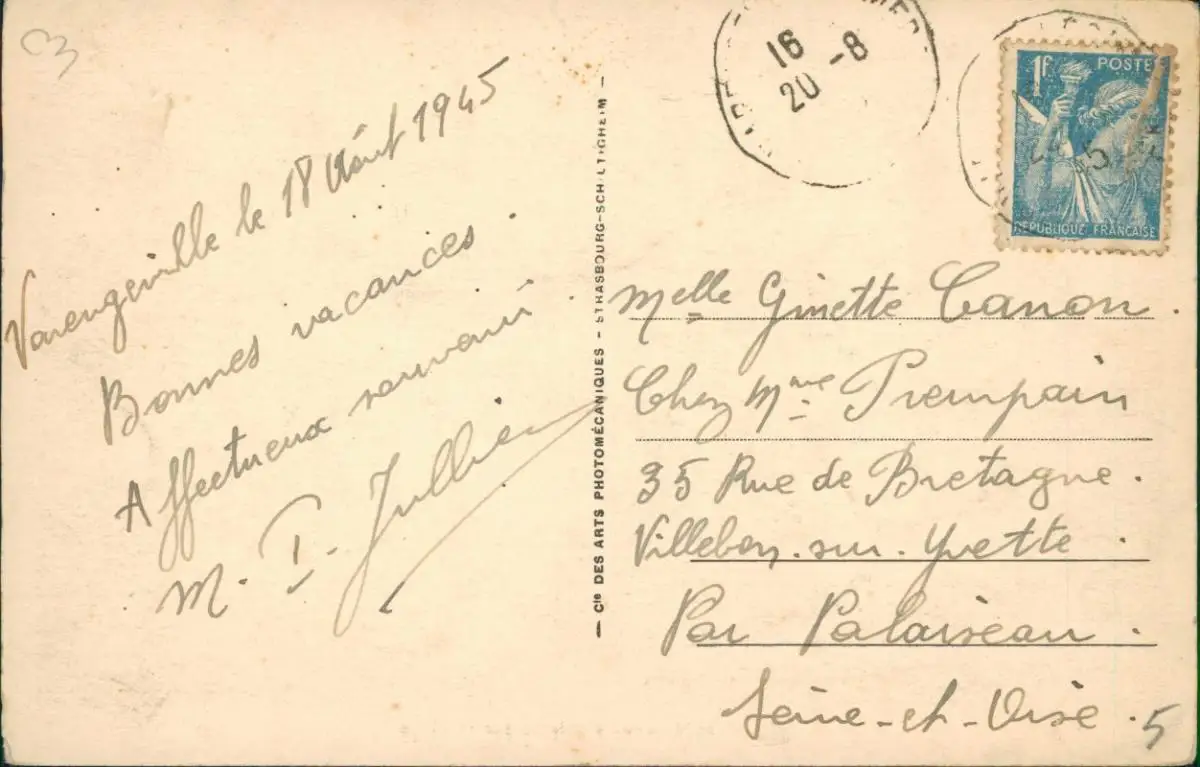 Varengeville le 18 Août 1945
Bonnes vacances.
Affectueux souvenir
M. P. Jullien
— Cie DES ARTS PHOTOMÉCANIQUES - STRASBOURG-SCHILTIGHEIM —
16
20 -8
1F. POSTES
RÉPUBLIQUE FRANÇAISE
Melle Ginette Canon.
Chez Mme Prempain
35 Rue de Bretagne.
Villebon-sur-Yvette.
Par Palaiseau.
Seine-et-Oise.
5